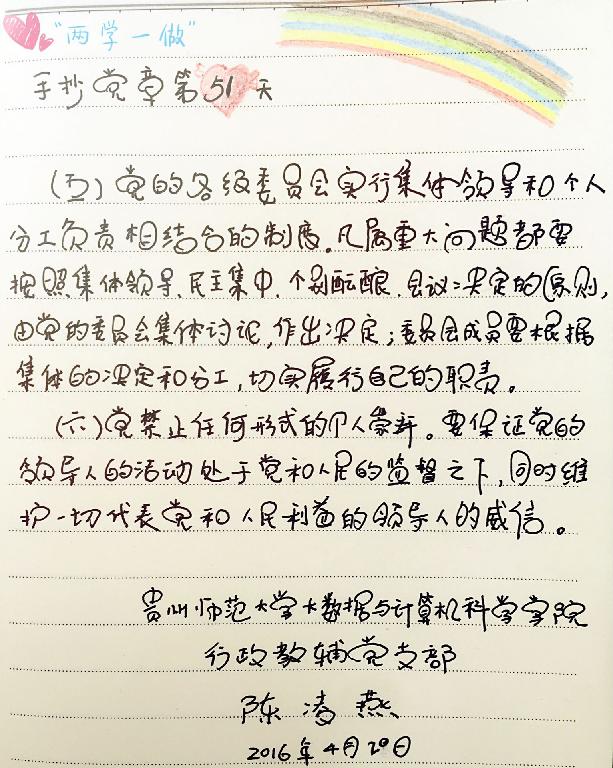 "两学一做"
手抄党章第51天
(五)党的各级委员会实行集体领导和个人
分工负责相结合的制度。凡属重大问题都要
按照集体领导、民主集中、个别酝酿、会议决定的原则,
由党的委员会集体讨论,作出决定;委员会成员要根据
集体的决定和分工,切实履行自己的职责。
(六)党禁止任何形式的个人崇拜。要保证党的
领导人的活动处于党和人民的监督之下,同时维
护一切代表党和人民利益的领导人的威信。
贵州师范大学大数据与计算机科学学院
行政教辅党支部
陈凌燕
2016年4月20日